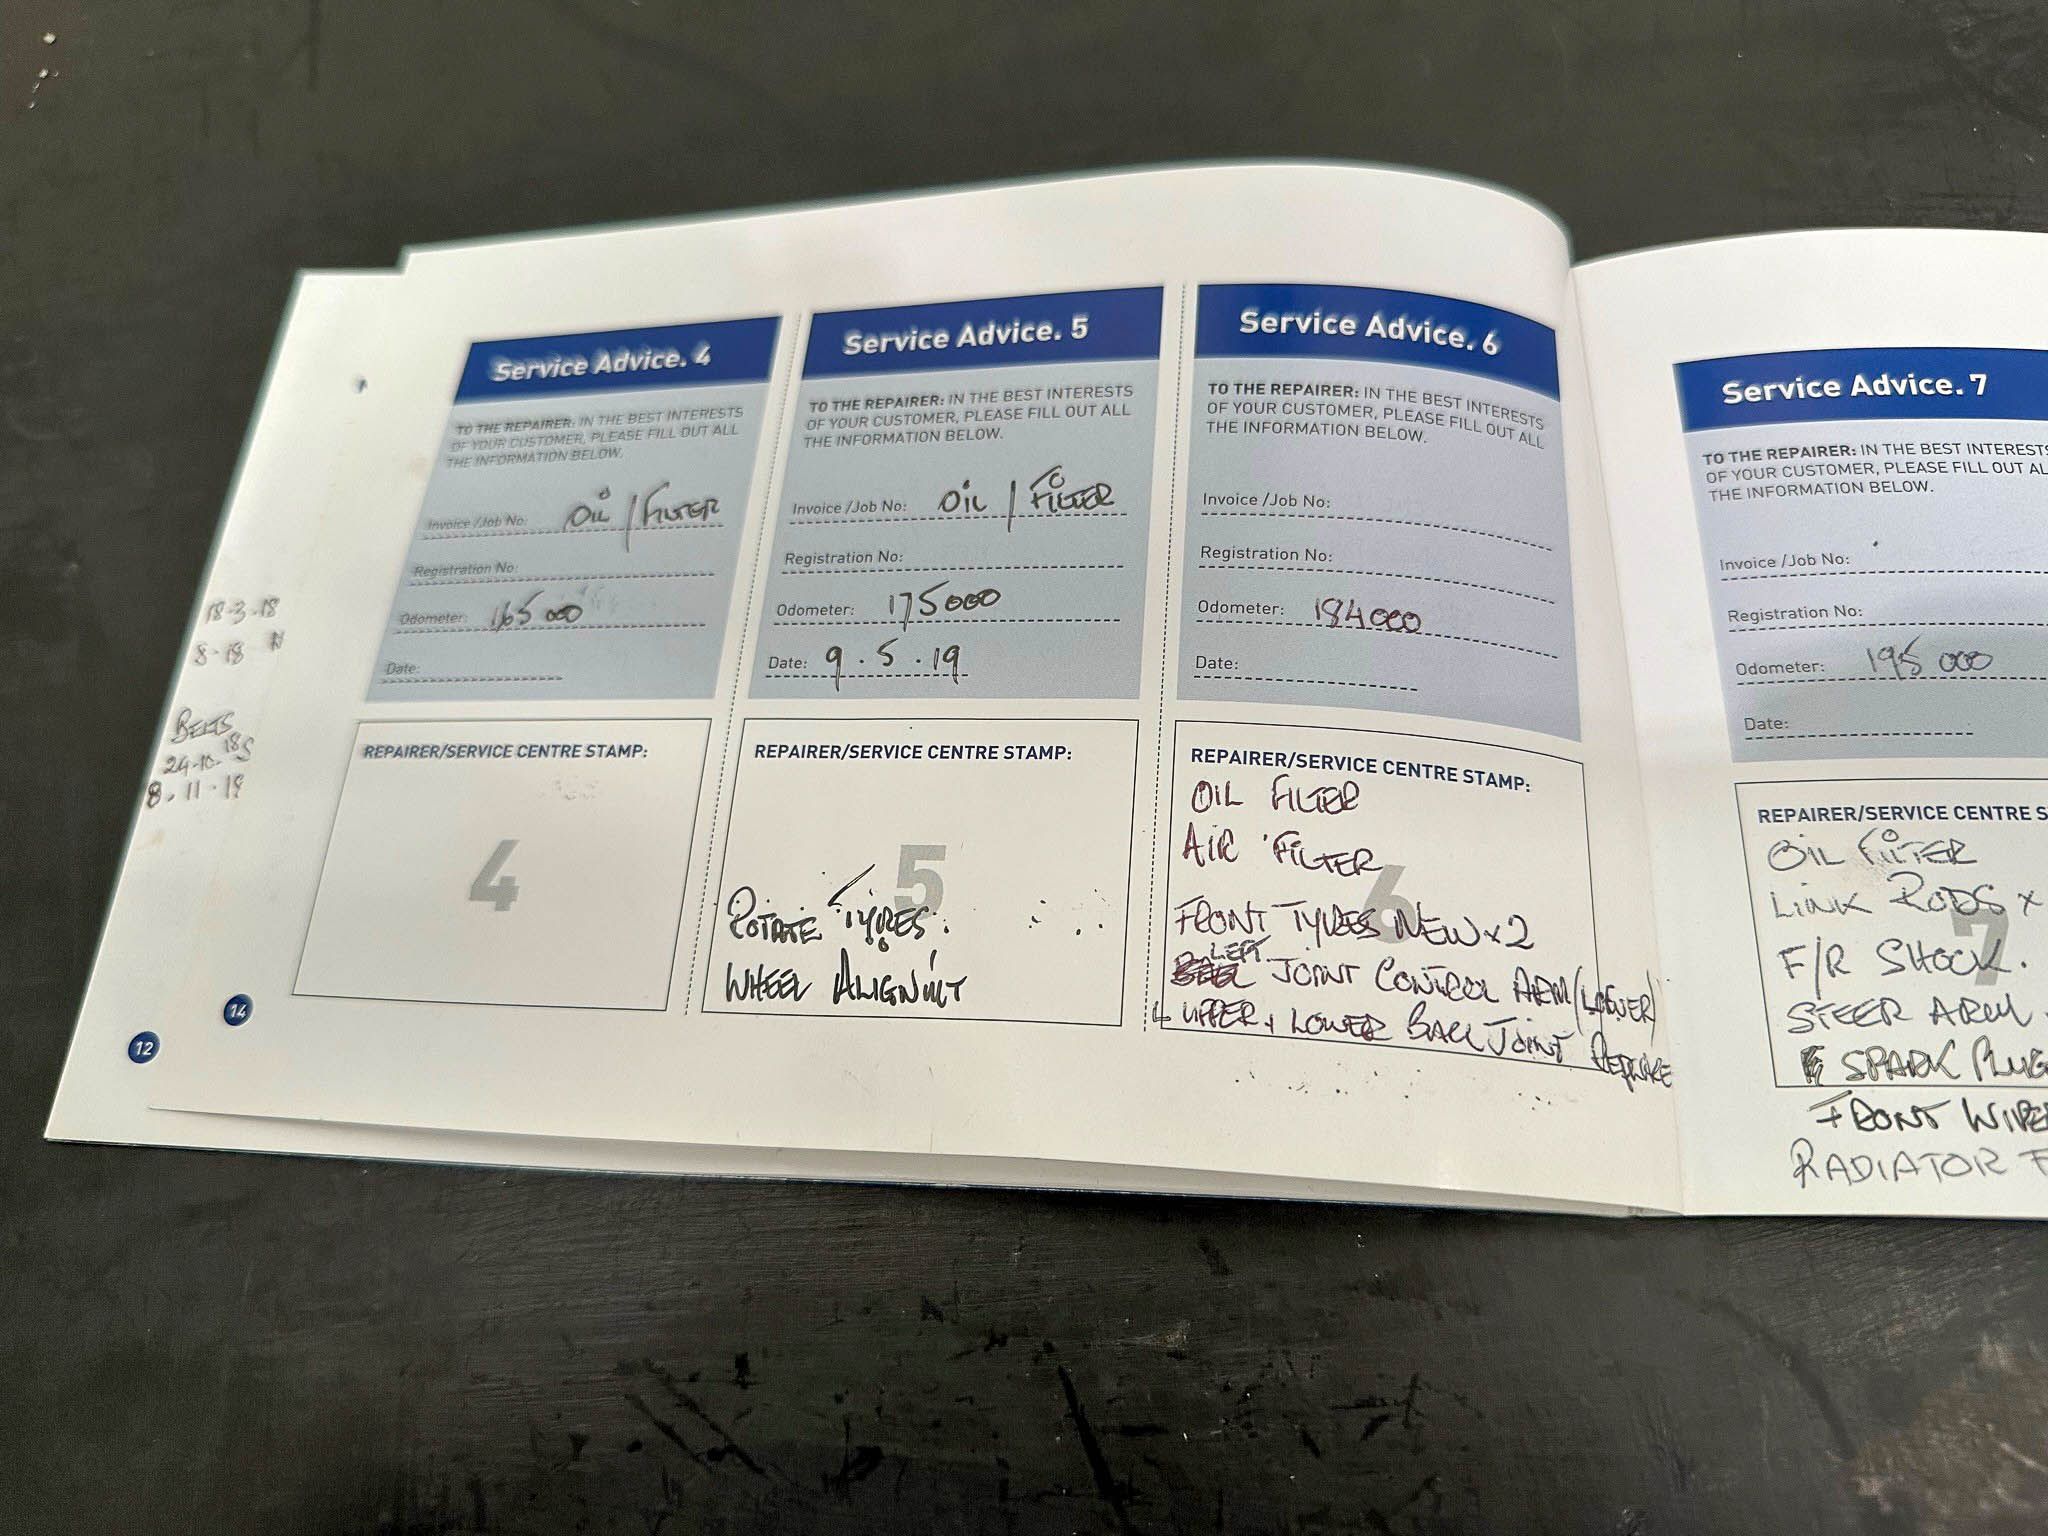 18-3-18
8-18
BELTS
24-10-18
8.11.19
12
14
Service Advice. 4
TO THE REPAIRER: IN THE BEST INTERESTS
OF YOUR CUSTOMER, PLEASE FILL OUT ALL
THE INFORMATION BELOW.
Invoice /Job No: OIL / FILTER
Registration No:
Odometer: 165 000
Date:
REPAIRER/SERVICE CENTRE STAMP:
4
Service Advice. 5
TO THE REPAIRER: IN THE BEST INTERESTS
OF YOUR CUSTOMER, PLEASE FILL OUT ALL
THE INFORMATION BELOW.
Invoice /Job No: OIL / FILTER
Registration No:
Odometer: 175000
Date: 9.5.19
REPAIRER/SERVICE CENTRE STAMP:
5
ROTATE TYRES.
WHEEL ALIGNMT
Service Advice. 6
TO THE REPAIRER: IN THE BEST INTERESTS
OF YOUR CUSTOMER, PLEASE FILL OUT ALL
THE INFORMATION BELOW.
Invoice /Job No:
Registration No:
Odometer: 184000
Date:
REPAIRER/SERVICE CENTRE STAMP:
6
OIL FILTER
AIR FILTER
FRONT TYRES NEW x 2
LEFT JOINT CONTROL ARM (LOWER)
L UPPER + LOWER BALL JOINT
Service Advice. 7
TO THE REPAIRER: IN THE BEST INTERESTS
OF YOUR CUSTOMER, PLEASE FILL OUT AL
THE INFORMATION BELOW.
Invoice /Job No:
Registration No:
Odometer: 195 000
Date:
REPAIRER/SERVICE CENTRE S
7
OIL FILTER
LINK RODS x
F/R SHOCK.
STEER ARM
SPARK PLUG
FRONT WIPE
RADIATOR F